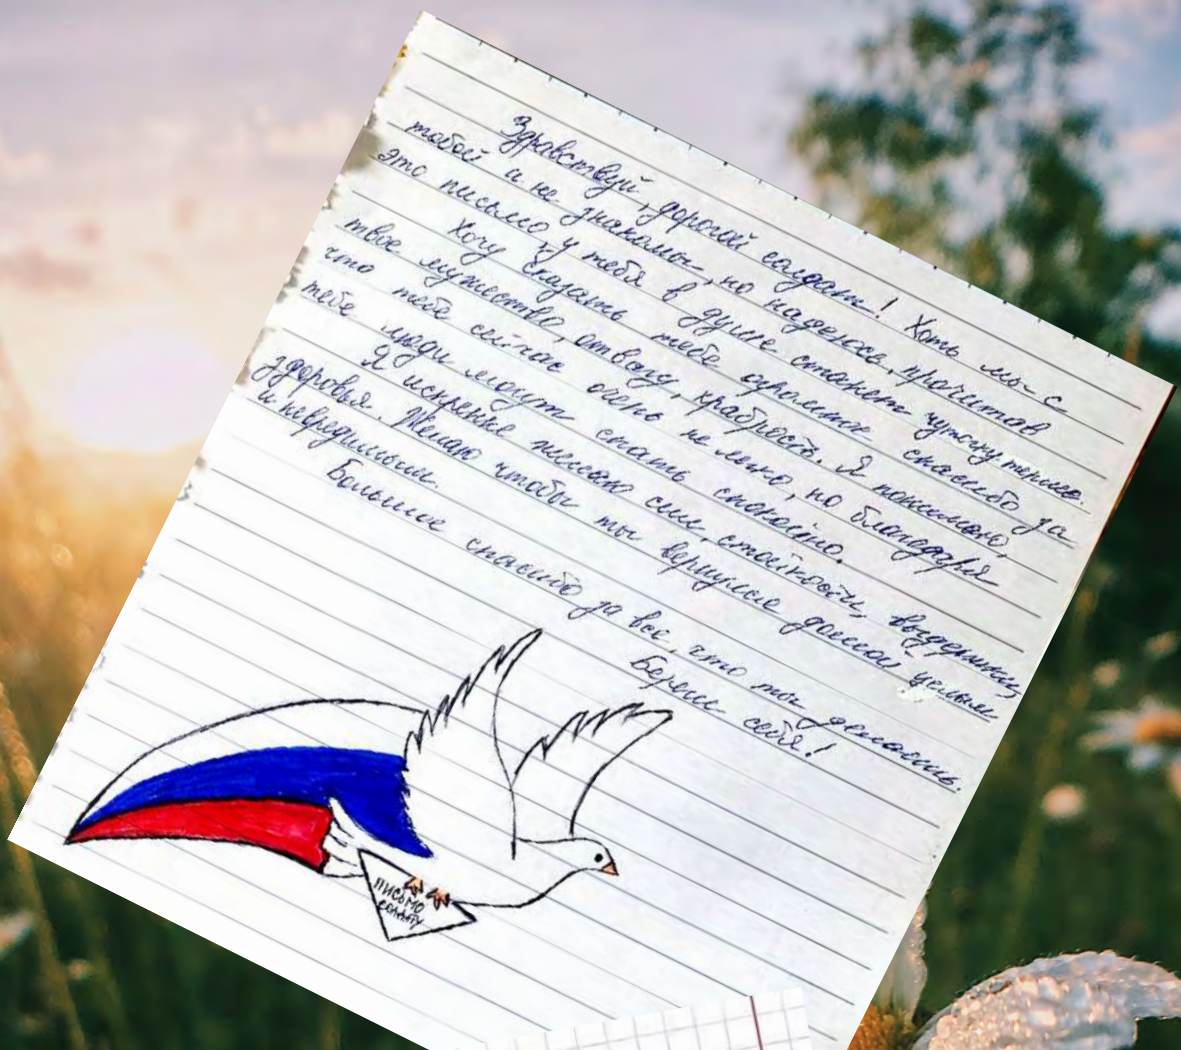 Здравствуй, дорогой солдат! Хоть мы с
тобой и не знакомы, но надеюсь, прочитав
это письмо у тебя в душе станет чуточку теплее.
Хочу сказать тебе огромное спасибо за
твое мужество, отвагу, храбрость. Я понимаю,
что тебе сейчас очень не легко, но благодаря
тебе люди могут спать спокойно.
Я искренне желаю сил, стойкости, выдержки,
здоровья. Желаю чтобы ты вернулся домой целым
и невредимым.
Большое спасибо за всё, что ты делаешь.
Береги себя!
ПИСЬМО
СОЛДАТУ